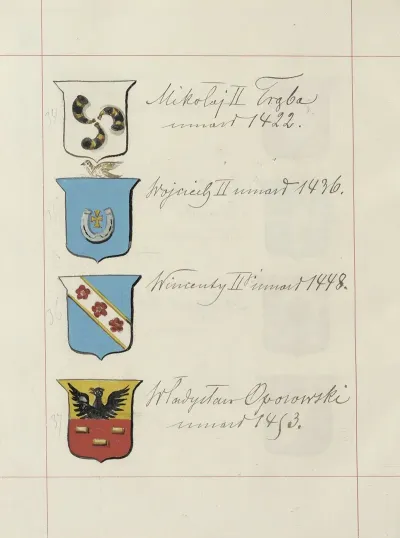 Mikołaj II Trąba
umarł 1422.
Wojciech II umarł 1436.
Wincenty II umarł 1448.
Władysław Oporowski
umarł 1453.